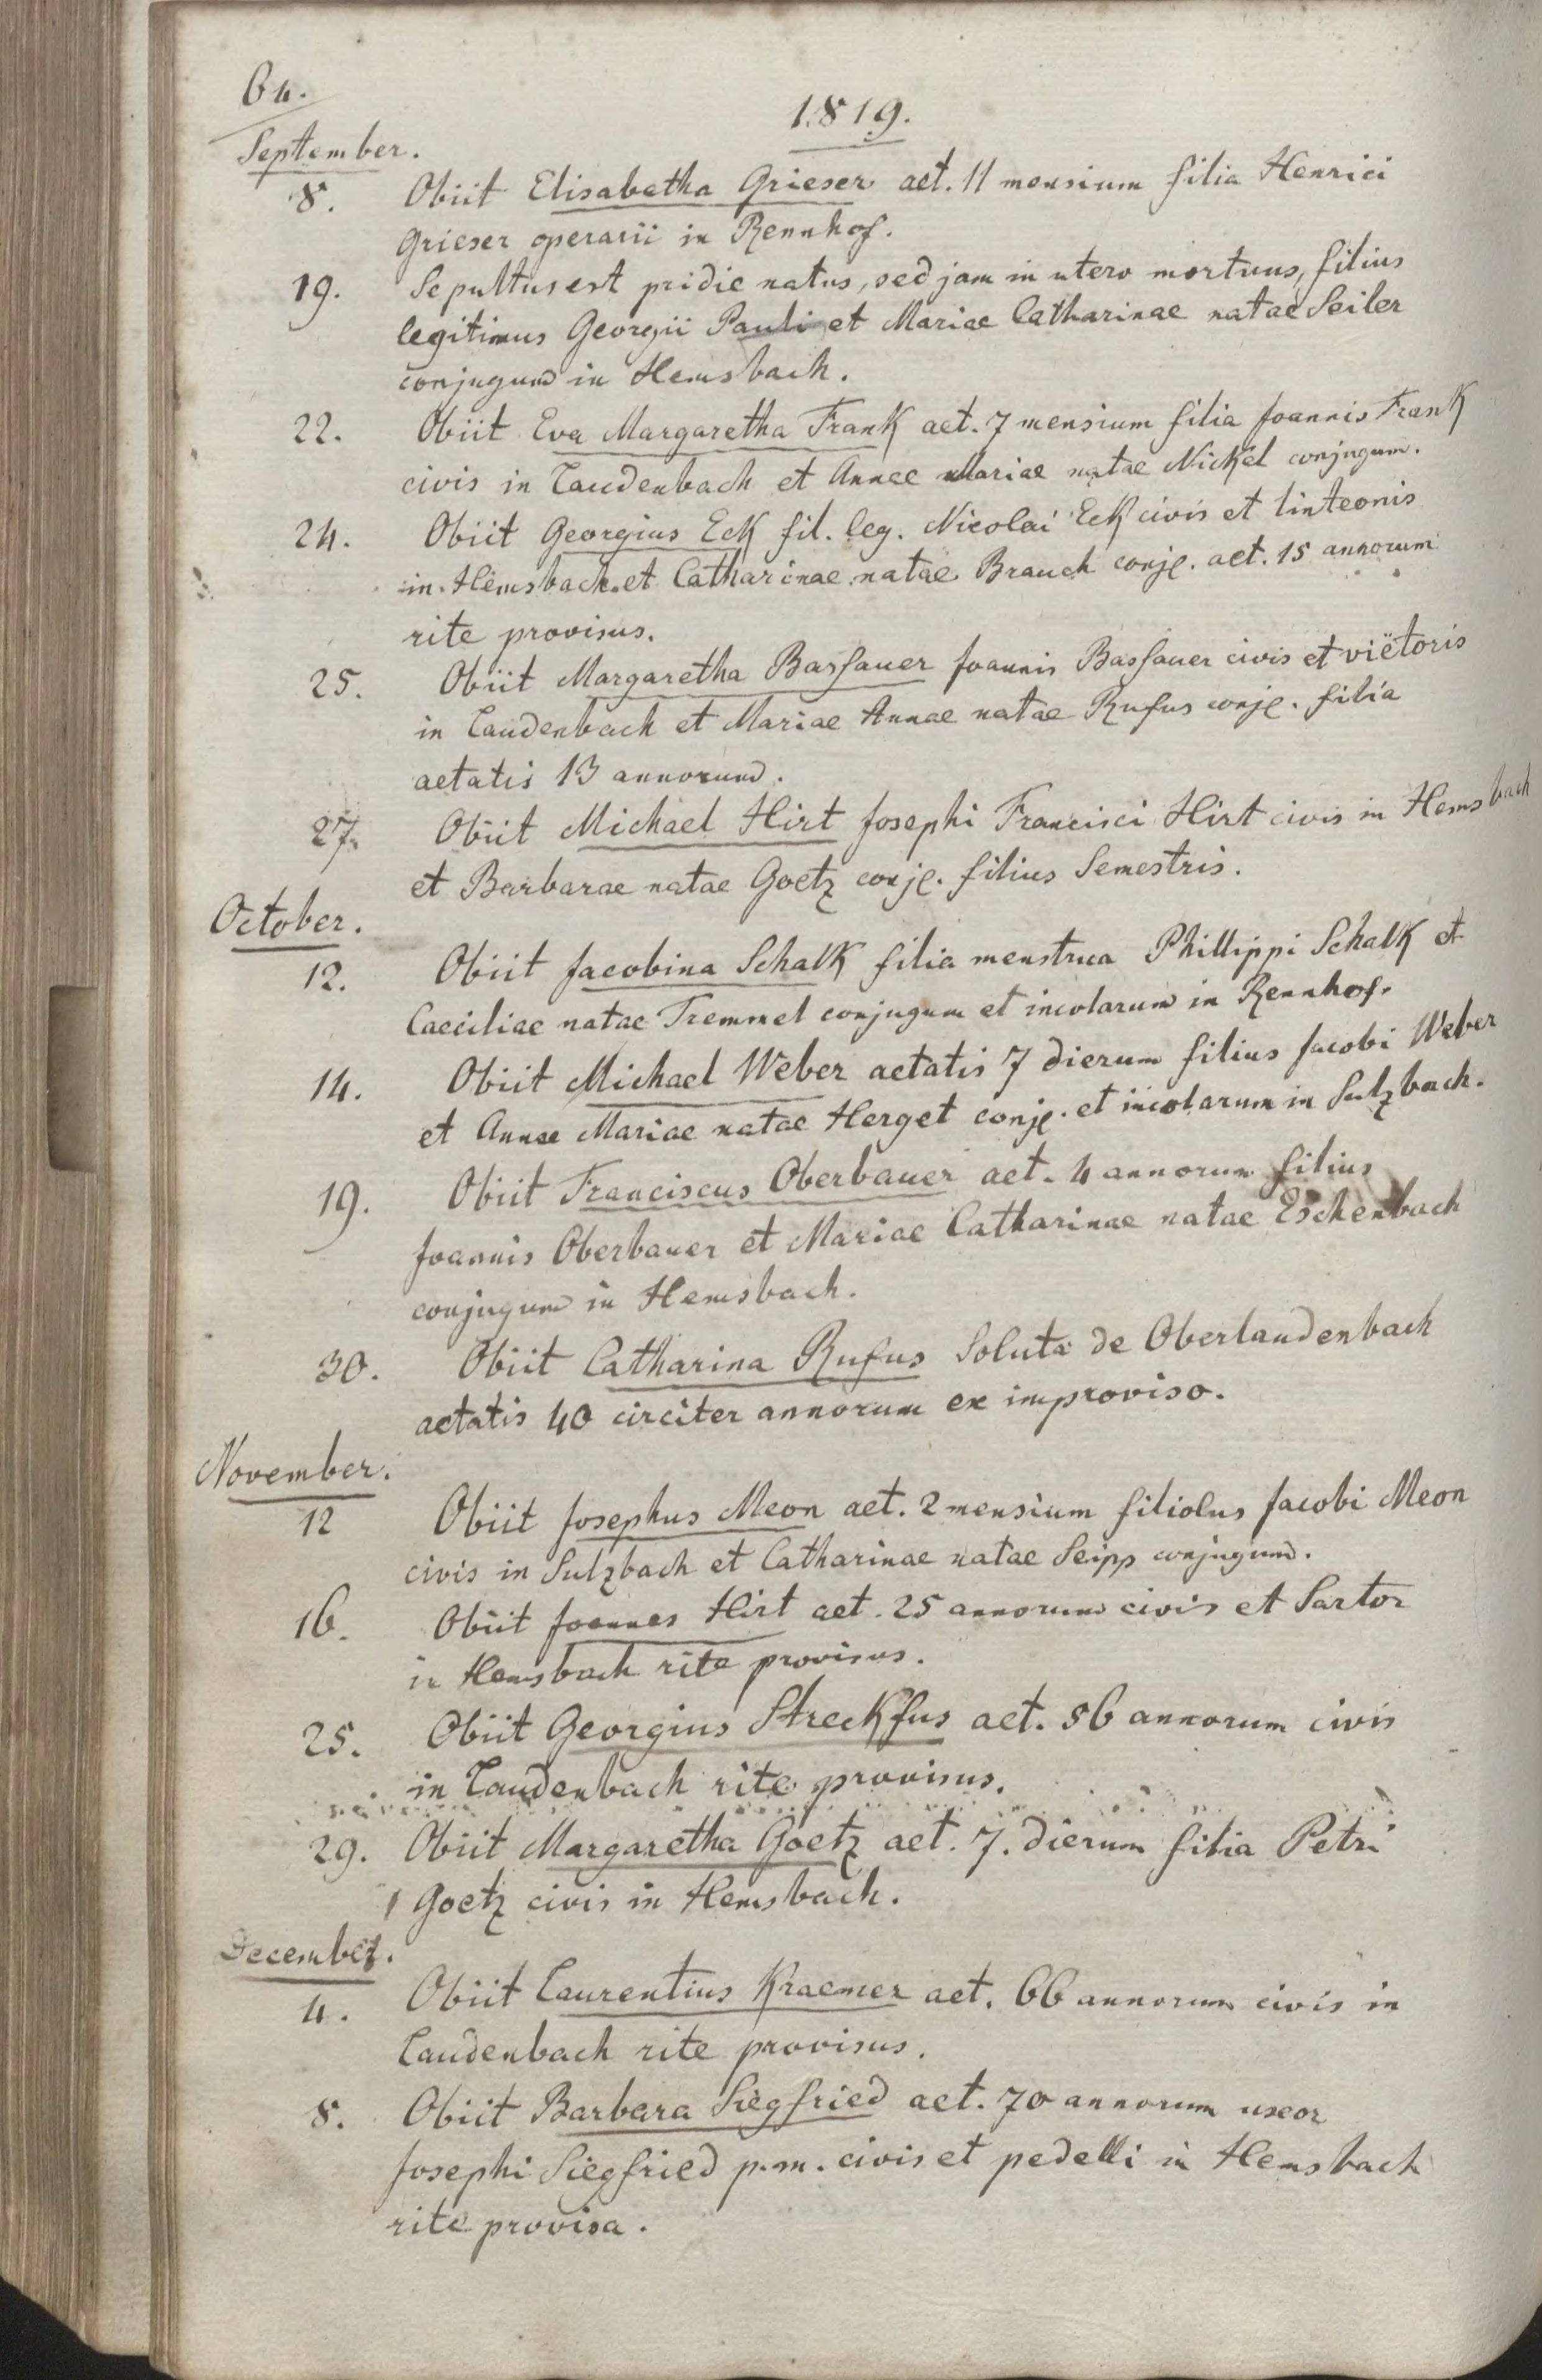 64.
1819.
September.
8. Obiit Elisabetha Grieser aet. 11 mensium filia Henrici
Grieser operarii in Rennhof.
19. Sepultus est pridie natus, sed jam in utero mortuus, filius
legitimus Georgii Pauli et Mariae Catharinae natae Seiler
conjugum in Hemsbach.
22. Obiit Eva Margaretha Frank aet. 7 mensium filia Joannis Frank
civis in Laudenbach et Annae Mariae natae Nickel conjugum.
24. Obiit Georgius Eck fil. leg. Nicolai Eck civis et linteonis
in Hemsbach et Catharinae natae Brauch conjg. aet. 15 annorum
rite provisus.
25. Obiit Margaretha Bassauer Joannis Bassauer civis et viëtoris
in Laudenbach et Mariae Annae natae Rufus conjg. filia
aetatis 13 annorum.
27. Obiit Michael Hirt Josephi Francisci Hirt civis in Hemsbach
et Barbarae natae Goetz conjg. filius Semestris.
October.
12. Obiit Jacobina Schalk filia menstrua Phillippi Schalk et
Caeciliae natae Tremmel conjugum et incolarum in Rennhof.
14. Obiit Michael Weber aetatis 7 dierum filius Jacobi Weber
et Annae Mariae natae Herget conjg. et incolarum in Sulzbach.
19. Obiit Franciscus Oberbauer aet. 4 annorum filius
Joannis Oberbauer et Mariae Catharinae natae Eschenbach
conjugum in Hemsbach.
30. Obiit Catharina Rufus Soluta de Oberlaudenbach
aetatis 40 circiter annorum ex improviso.
November.
12 Obiit Josephus Meon aet. 2 mensium filiolus Jacobi Meon
civis in Sulzbach et Catharinae natae Seipp conjugum.
16. Obiit Joannes Hirt aet. 25 annorum civis et Sartor
in Hemsbach rite provisus.
25. Obiit Georgius Streckfus aet. 56 annorum civis
in Laudenbach rite provisus.
29. Obiit Margaretha Goetz aet. 7. dierum filia Petri
Goetz civis in Hemsbach.
December.
4. Obiit Laurentius Kraemer aet. 66 annorum civis in
Laudenbach rite provisus.
8. Obiit Barbara Siegfried aet. 70 annorum uxor
Josephi Siegfried p.m. civis et pedelli in Hemsbach
rite provisa.